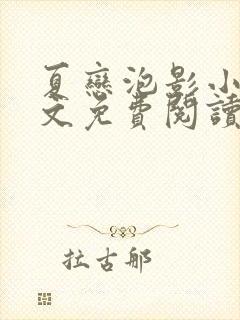 夏戀泡影小
文免費閱讀
拉古那